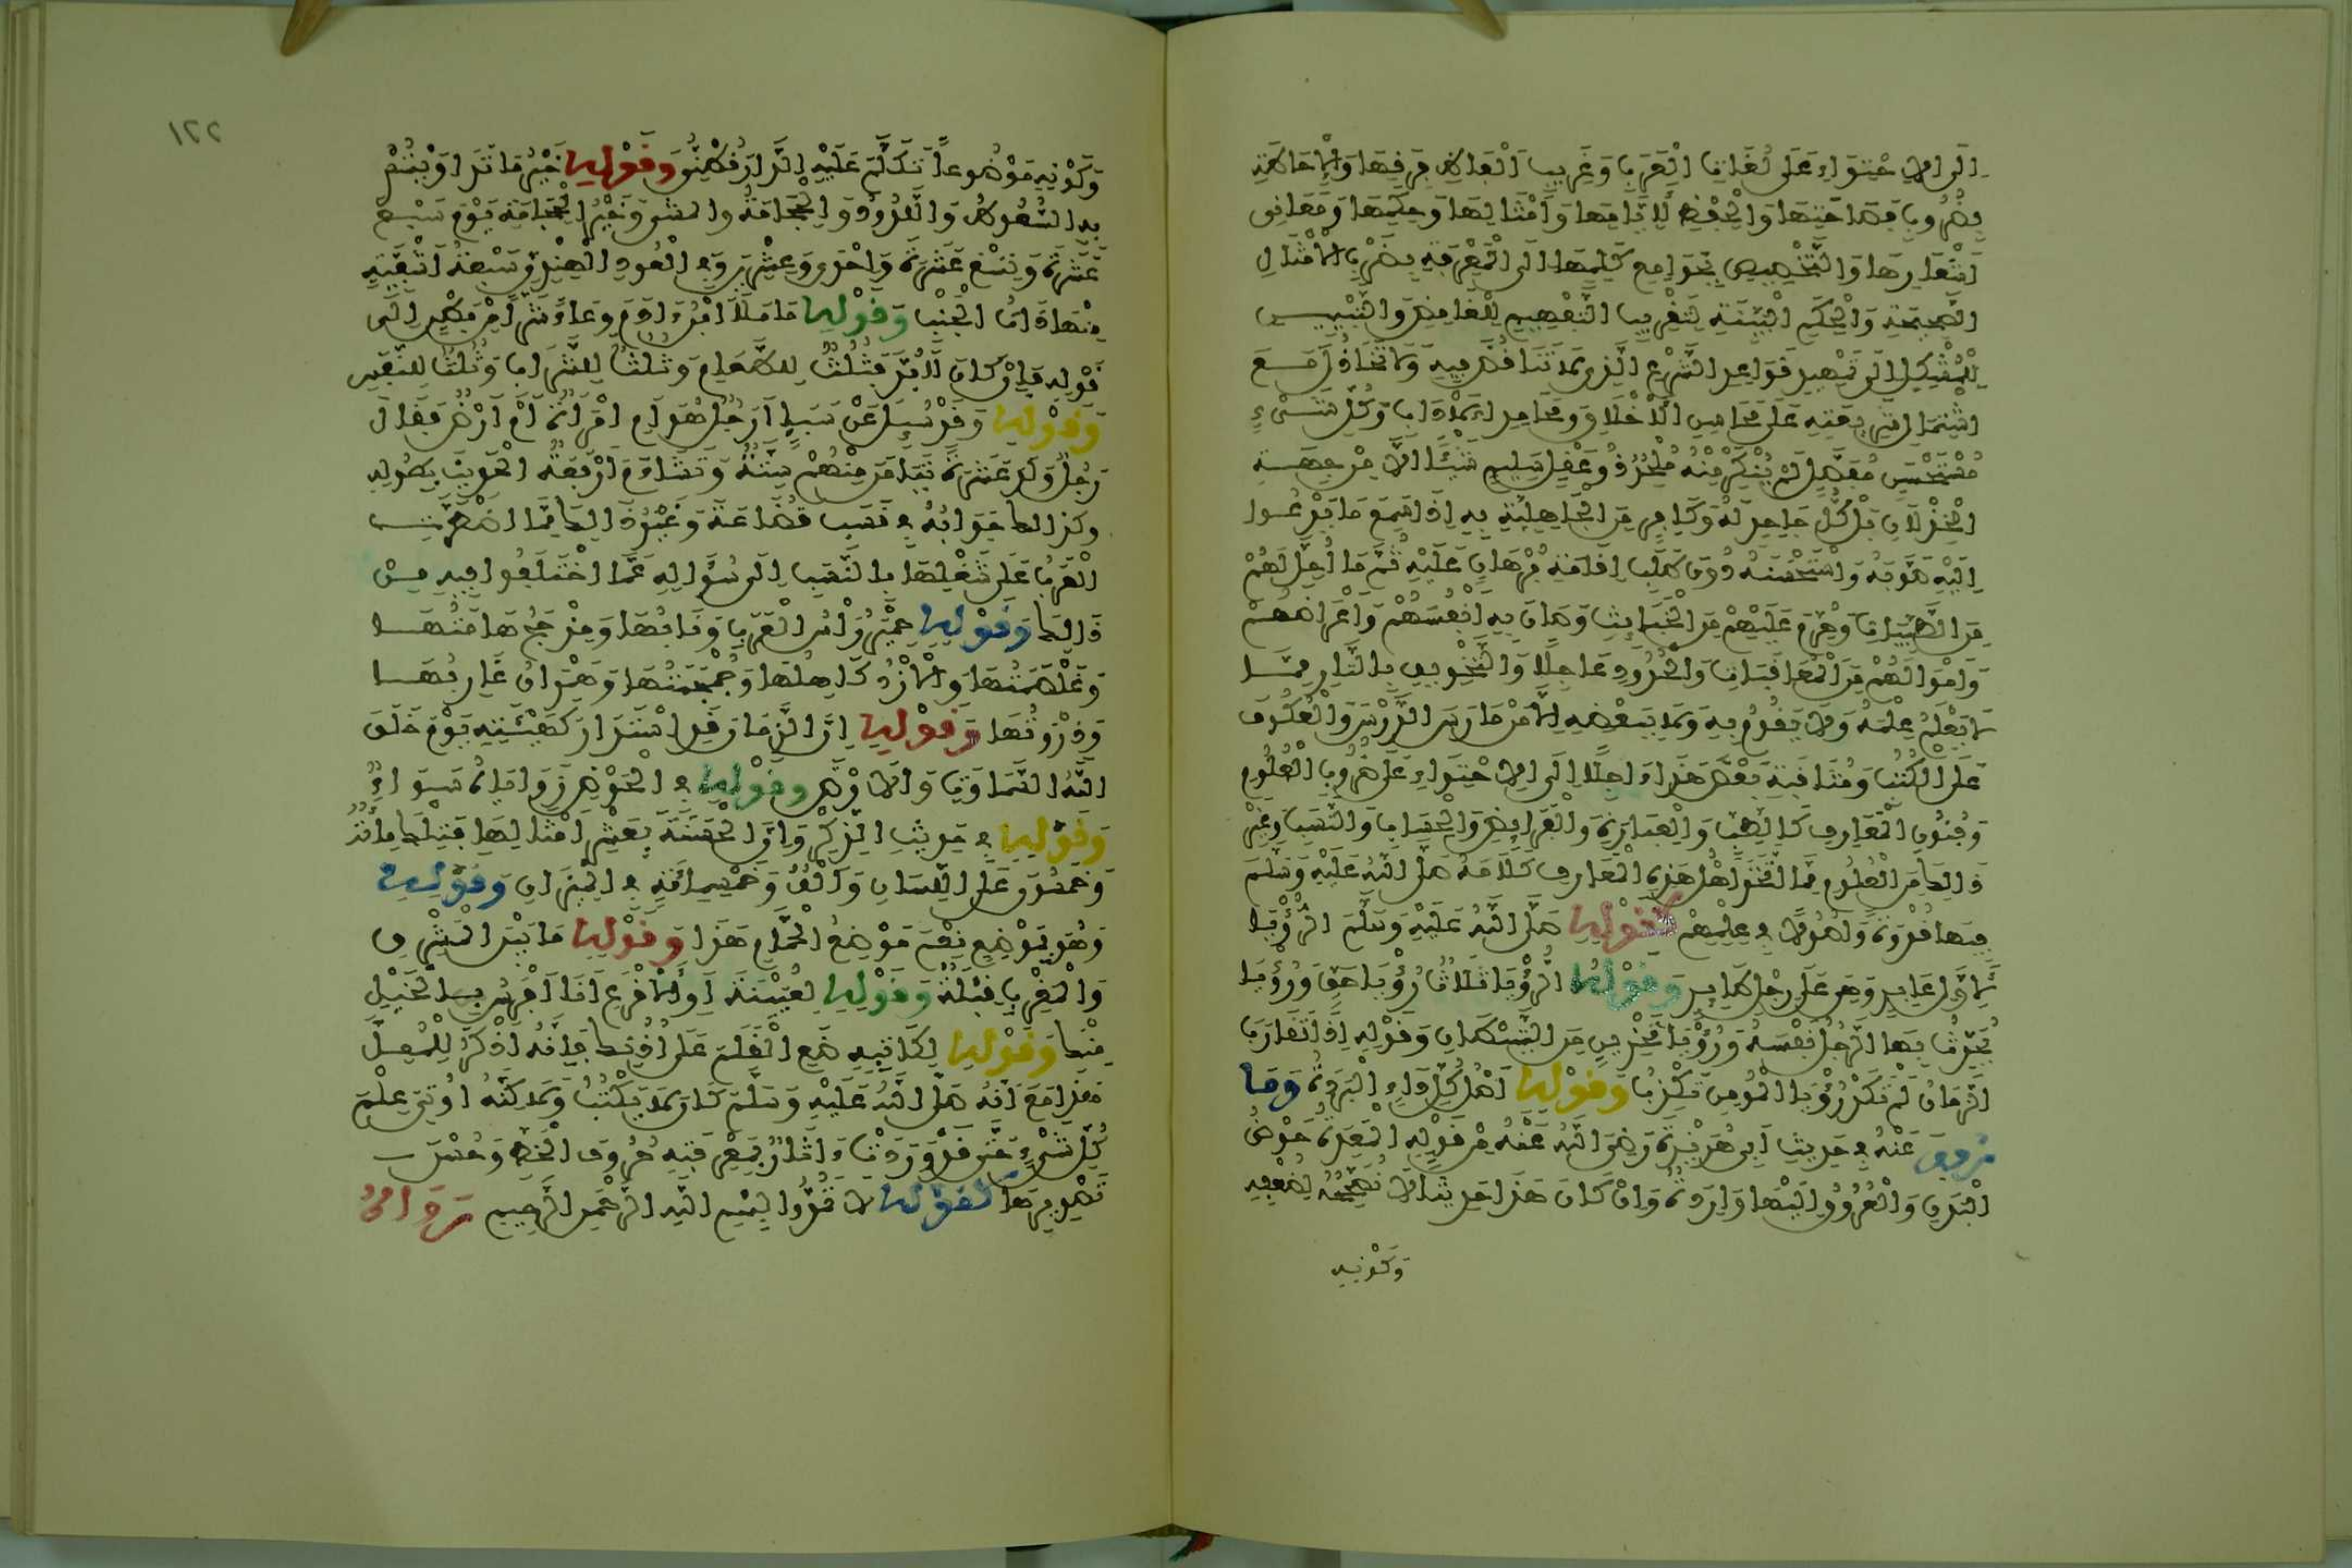 إِلَى الِاحْتِوَاءِ عَلَى لُغَاتِ الْعَرَبِ وَغَرِيبِ أَلْفَاظِ فِرَقِهَا وَالْإِحَاطَةِ
بِضُرُوبِ فَصَاحَتِهَا وَالْحِفْظِ لِأَيَّامِهَا وَأَمْثَالِهَا وَحِكَمِهَا وَمَعَانِي
أَشْعَارِهَا وَالتَّخْصِيصِ بِجَوَامِعِ كَلِمِهَا إِلَى الْمَعْرِفَةِ بِضَرْبِ الْأَمْثَالِ
الصَّحِيحَةِ وَالْحِكَمِ الْبَيِّنَةِ لِتَقْرِيبِ التَّفْهِيمِ لِلْغَامِضِ وَالتَّبْيِينِ
لِلْمُشْكِلِ إِلَى تَمْهِيدِ قَوَاعِدِ الشَّرْعِ الَّذِي لَا تَنَاقُضَ فِيهِ وَلَا تَخَاذُلَ مَعَ
اشْتِمَالِ شَرِيعَتِهِ عَلَى مَحَاسِنِ الْأَخْلَاقِ وَمَحَامِدِ الْآدَابِ وَكُلِّ شَيْءٍ
مُسْتَحْسَنٍ مُفَضَّلٍ لَمْ يُنْكِرْ مِنْهُ مُلْحِدٌ ذُو عَقْلٍ سَلِيمٍ شَيْئًا إِلَّا مِنْ جِهَةِ
الْخِذْلَانِ بَلْ كُلُّ جَاحِدٍ لَهُ وَكَافِرٍ مِنَ الْجَاهِلِيَّةِ بِهِ إِذَا سَمِعَ مَا يَدْعُوا
إِلَيْهِ صَوَّبَهُ وَاسْتَحْسَنَهُ دُونَ طَلَبِ إِقَامَةِ بُرْهَانٍ عَلَيْهِ ثُمَّ مَا أُحِلَّ لَهُمْ
مِنَ الطَّيِّبَاتِ وَحُرِّمَ عَلَيْهِمْ مِنَ الْخَبَائِثِ وَصَانَ بِهِ أَنْفُسَهُمْ وَأَعْرَاضَهُمْ
وَأَمْوَالَهُمْ مِنَ الْمُعَاقَبَاتِ وَالْحُدُودِ عَاجِلًا وَالتَّخْوِيفِ بِالنَّارِ مِمَّا
لَا يَعْلَمُ عِلْمَهُ وَلَا يَقُومُ بِهِ وَلَا بِبَعْضِهِ إِلَّا مَنْ مَارَسَ الدَّرْسَ وَالْعُكُوفَ
عَلَى الْكُتُبِ وَمُثَافَنَةِ بَعْضِ هَذَا آجِلًا إِلَى الِاحْتِوَاءِ عَلَى ضُرُوبِ الْعُلُومِ
وَفُنُونِ الْمَعَارِفِ كَالطِّبِّ وَالْعِبَارَةِ وَالْفَرَائِضِ وَالْحِسَابِ وَالنَّسَبِ وَغَيْرِ
ذَالِكَ مِنَ الْعُلُومِ مِمَّا اتَّخَذَ أَهْلُ هَذِهِ الْمَعَارِفِ كَلَامَهُ صَلَّى اللهُ عَلَيْهِ وَسَلَّمَ
فِيهَا قُدْوَةً وَأُصُولًا فِي عِلْمِهِمْ كَقَوْلِهِ صَلَّى اللهُ عَلَيْهِ وَسَلَّمَ الرُّؤْيَا
لِأَوَّلِ عَابِرٍ وَهِيَ عَلَى رِجْلِ طَائِرٍ وَقَوْلِهِ الرُّؤْيَا ثَلَاثٌ رُؤْيَا حَقٌّ وَرُؤْيَا
يُحَدِّثُ بِهَا الرَّجُلُ نَفْسَهُ وَرُؤْيَا تَحْزِينٍ مِنَ الشَّيْطَانِ وَقَوْلِهِ إِذَا تَقَارَبَ
الزَّمَانُ لَمْ تَكَدْ رُؤْيَا الْمُومِنِ تَكْذِبُ وَقَوْلِهِ أَصْلُ كُلِّ دَاءٍ الْبَرَدَةُ وَمَا
رُوِيَ عَنْهُ فِي حَدِيثِ أَبِي هُرَيْرَةَ رَضِيَ اللهُ عَنْهُ مِنْ قَوْلِهِ الْمَعِدَةُ حَوْضُ
الْبَدَنِ وَالْعُرُوقُ إِلَيْهَا وَارِدَةٌ وَإِنْ كَانَ هَذَا حَدِيثًا لَا نُصَحِّحُهُ لِضُعْفِهِ
وَكَوْنِهِ
١٢٢
وَكَوْنِهِ مَوْضُوعًا تَكَلَّمَ عَلَيْهِ الدَّارَقُطْنِيُّ وَقَوْلِهِ خَيْرُ مَا تَدَاوَيْتُمْ
بِهِ السَّعُوطُ وَاللَّدُودُ وَالْحِجَامَةُ وَالْمَشِيُّ وَخَيْرُ الْحِجَامَةِ يَوْمَ سَبْعَ
عَشْرَةَ وَتِسْعَ عَشْرَةَ وَإِحْدَى وَعِشْرِينَ وَفِي الْعُودِ الْهِنْدِيِّ سَبْعَةُ أَشْفِيَةٍ
مِنْهَا ذَاتُ الْجَنْبِ وَقَوْلِهِ مَا مَلَأَ ابْنُ آدَمَ وِعَاءً شَرًّا مِنْ بَطْنٍ إِلَى
قَوْلِهِ فَإِنْ كَانَ لَابُدَّ فَثُلُثٌ لِلطَّعَامِ وَثُلُثٌ لِلشَّرَابِ وَثُلُثٌ لِلنَّفَسِ
وَقَوْلِهِ وَقَدْ سُئِلَ عَنْ سَبَإٍ أَرَجُلٌ هُوَ أَمِ امْرَأَةٌ أَمْ أَرْضٌ فَقَالَ
رَجُلٌ وَلَدَ عَشَرَةً تَيَامَنَ مِنْهُمْ سِتَّةٌ وَتَشَاءَمَ أَرْبَعَةٌ الْحَدِيثَ بِطُولِهِ
وكذالك جَوَابُهُ فِي نَسَبِ قُضَاعَةَ وَغَيْرُ ذَالِكَ مِمَّا اضْطَرَّتِ
الْعَرَبُ عَلَى شُغْلِهَا بِالنَّسَبِ إِلَى سُؤَالِهِ عَمَّا اخْتَلَفُوا فِيهِ مِنْ
ذَالِكَ وَقَوْلِهِ حِمْيَرُ رَأْسُ الْعَرَبِ وَنَابُهَا وَمَذْحِجُ هَامَتُهَا
وَغَلْصَمَتُهَا وَالْأَزْدُ كَاهِلُهَا وَجُمْجُمَتُهَا وَهَمْدَانُ غَارِبُهَا
وَذِرْوَتُهَا وَقَوْلِهِ إِنَّ الزَّمَانَ قَدِ اسْتَدَارَ كَهَيْئَتِهِ يَوْمَ خَلَقَ
اللهُ السَّمَاوَاتِ وَالْأَرْضَ وَقَوْلِهِ فِي الْحَوْضِ زَوَايَاهُ سَوَاءٌ
وَقَوْلِهِ فِي حَدِيثِ الذِّكْرِ وَإِنَّ الْحَسَنَةَ بِعَشْرِ أَمْثَالِهَا فَتِلْكَ مِائَةٌ
وَخَمْسُونَ عَلَى اللِّسَانِ وَأَلْفٌ وَخَمْسُمِائَةٍ فِي الْمِيزَانِ وَقَوْلِهِ
وَهُوَ بِمَوْضِعٍ نِعْمَ مَوْضِعُ الْحَمَّامِ هَذَا وَقَوْلِهِ مَا بَيْنَ الْمَشْرِقِ
وَالْمَغْرِبِ قِبْلَةٌ وَقَوْلِهِ لِعُيَيْنَةَ أَوِ الْأَقْرَعِ أَنَا أَفْرَسُ بِالْخَيْلِ
مِنْكَ وَقَوْلِهِ لِكَاتِبِهِ ضَعِ الْقَلَمَ عَلَى أُذُنِكَ فَإِنَّهُ أَذْكَرُ لِلْمُمِلِّ
هَذَا مَعَ أَنَّهُ صَلَّى اللهُ عَلَيْهِ وَسَلَّمَ كَانَ لَا يَكْتُبُ وَلَاكِنَّهُ أُوتِيَ عِلْمَ
كُلِّ شَيْءٍ حَتَّى قَدْ وَرَدَتْ آثَارٌ بِمَعْرِفَتِهِ حُرُوفَ الْخَطِّ وَحُسْنَ
تَصْوِيرِهَا كَقَوْلِهِ لَا تَمُدُّوا بِسْمِ اللهِ الرَّحْمَنِ الرَّحِيمِ رَوَاهُ